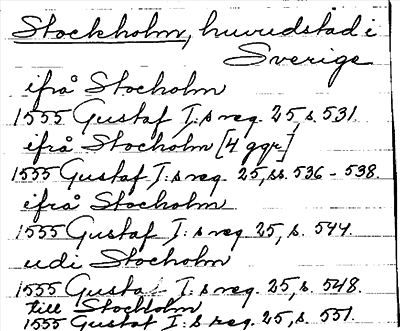 Stockholm, huvudstad i
Sverige
ifrå Stocholm
1555 Gustaf I:s reg. 25, s. 531.
ifrå Stocholm [4 ggr]
1555 Gustaf I:s reg. 25, ss. 536-538.
ifrå Stocholm
1555 Gustaf I:s reg. 25, s. 544.
udi Stocholm
1555 Gustaf I:s reg. 25, s. 548.
till Stockholm
1555 Gustaf I:s reg. 25, s. 551.